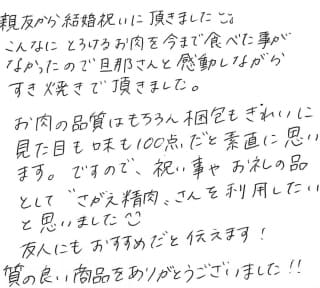 親友から結婚祝いに頂きました
こんなに とろけるお肉を今まで食べた事が
なかったので旦那さんと感動しながら
すき焼きで頂きました。
お肉の品質はもちろん梱包もきれいに
見た目も味も100点だと素直に思い
ます。ですので、祝い事や お礼の品
として〝さがえ精肉〟さんを利用したい
と思いました
友人にもおすすめだと伝えます！
質の良い商品をありがとうございました!!